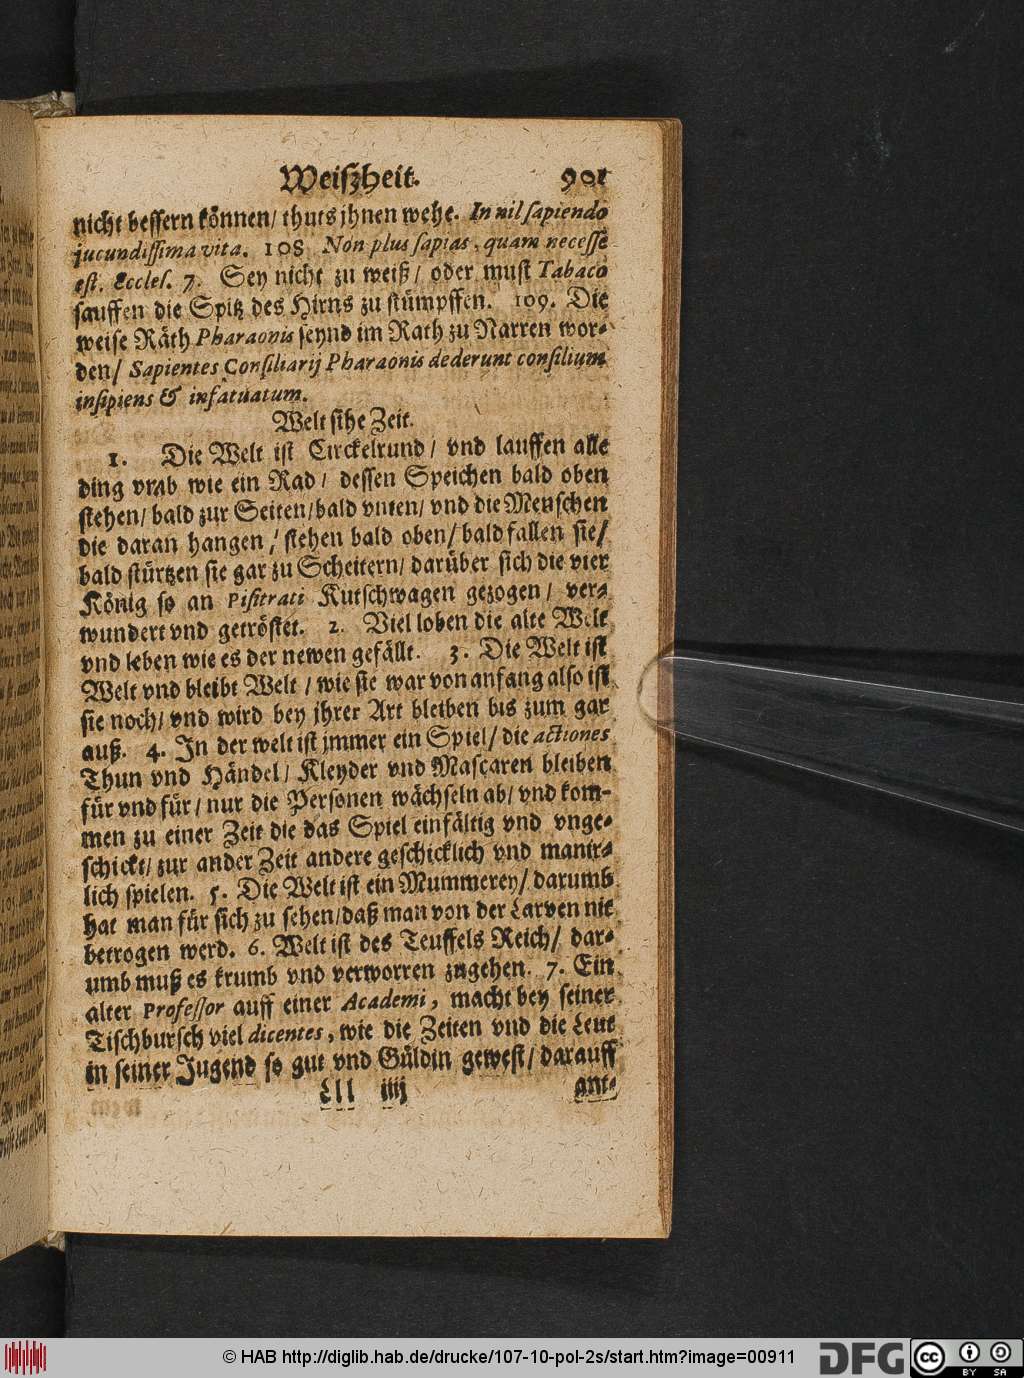 Weißheit. 901
nicht bessern können/ thuts jhnen wehe. In nil sapiendo
jucundissima vita. 108 Non plus sapias, quam necesse
est. Eccles. 7. Sey nicht zu weiß/ oder must Tabaco
sauffen die Spitz des Hirns zu stümpffen. 109. Die
weise Räth Pharaonis seynd im Rath zu Narren wor-
den/ Sapientes Consiliarij Pharaonis dederunt consilium
insipiens & infatuatum.
Welt sihe Zeit.
1. Die Welt ist Circkelrund/ vnd lauffen alle
ding vmb wie ein Rad/ dessen Speichen bald oben
stehen/ bald zur Seiten/ bald vnten/ vnd die Menschen
die daran hangen/ stehen bald oben/ bald fallen sie/
bald stürtzen sie gar zu Scheitern/ darüber sich die vier
König so an Pisitrati Kutschwagen gezogen/ ver-
wundert vnd getröstet. 2. Viel loben die alte Welt
vnd leben wie es der newen gefällt. 3. Die Welt ist
Welt vnd bleibt Welt/ wie sie war von anfang also ist
sie noch/ vnd wird bey jhrer Art bleiben bis zum gar
auß. 4. In der welt ist jmmer ein Spiel/ die actiones
Thun vnd Händel/ Kleyder vnd Mascaren bleiben
für vnd für/ nur die Personen wächseln ab/ vnd kom-
men zu einer Zeit die das Spiel einfältig vnd vnge-
schickt/ zur ander Zeit andere geschicklich vnd manir-
lich spielen. 5. Die Welt ist ein Mummerey/ darumb
hat man für sich zu sehen/ daß man von der Larven nit
betrogen werd. 6. Welt ist des Teuffels Reich/ dar-
umb muß es krumb vnd verworren zugehen. 7. Ein
alter Professor auff einer Academi, macht bey seiner
Tischbursch viel dicentes, wie die Zeiten vnd die Leut
in seiner Jugend so gut vnd Güldin gewest/ darauff
Lll iiij ant-
© HAB http://diglib.hab.de/drucke/107-10-pol-2s/start.htm?image=00911
DFG
cc BY SA